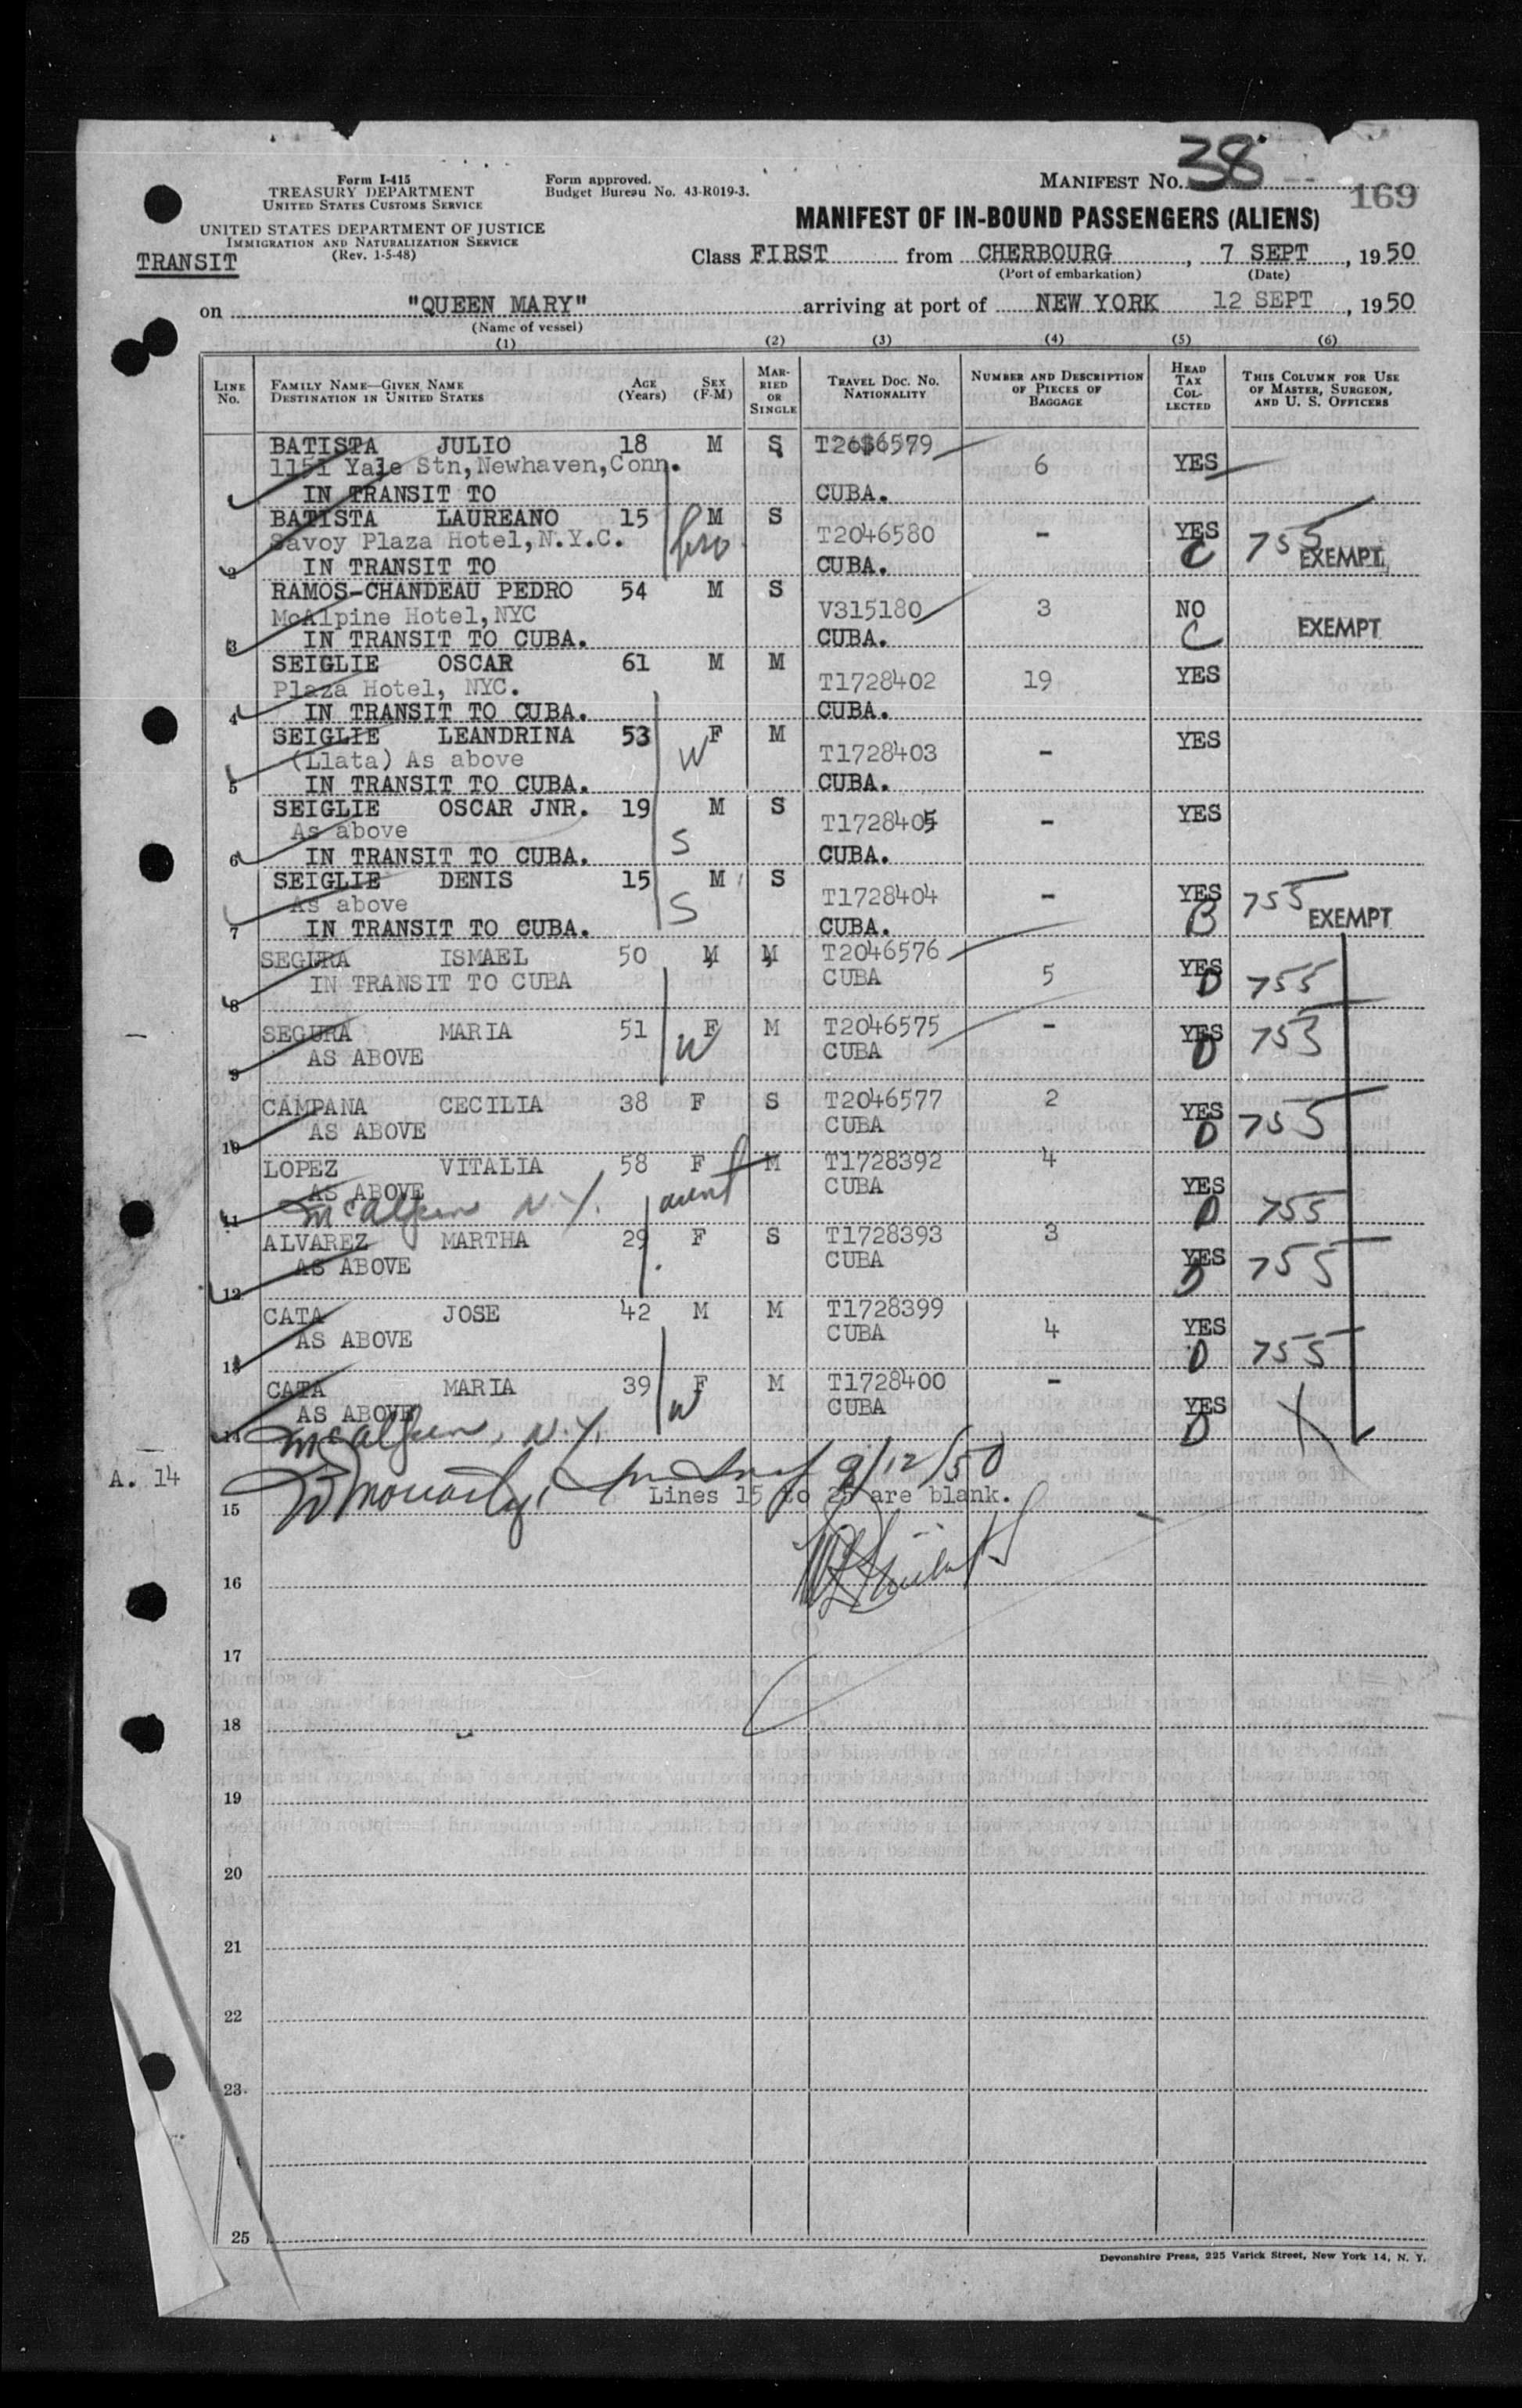 38
169
Form I-415
TREASURY DEPARTMENT
UNITED STATES CUSTOMS SERVICE
UNITED STATES DEPARTMENT OF JUSTICE
IMMIGRATION AND NATURALIZATION SERVICE
(Rev. 1-5-48)
TRANSIT
Form approved.
Budget Bureau No. 43-R019-3.
MANIFEST NO.
MANIFEST OF IN-BOUND PASSENGERS (ALIENS)
Class FIRST from CHERBOURG, 7 SEPT, 1950
(Port of embarkation) (Date)
on "QUEEN MARY" arriving at port of NEW YORK 12 SEPT, 1950
(Name of vessel)
(1) (2) (3) (4) (5) (6)
LINE NO. FAMILY NAME—GIVEN NAME DESTINATION IN UNITED STATES AGE (YEARS) SEX (F-M) MARRIED OR SINGLE TRAVEL DOC. NO. NATIONALITY NUMBER AND DESCRIPTION OF PIECES OF BAGGAGE HEAD TAX COLLECTED THIS COLUMN FOR USE OF MASTER, SURGEON, AND U. S. OFFICERS
BATISTA JULIO 18 M S T2046579
1151 Yale Stn, Newhaven, Conn. 6 YES
IN TRANSIT TO CUBA.
BATISTA LAUREANO 15 M S
Savoy Plaza Hotel, N.Y.C. bro T2046580 - YES 755
2 IN TRANSIT TO CUBA. C EXEMPT
RAMOS-CHANDEAU PEDRO 54 M S
McAlpine Hotel, NYC V315180 3 NO
3 IN TRANSIT TO CUBA. CUBA. C EXEMPT
SEIGLIE OSCAR 61 M M
Plaza Hotel, NYC. T1728402 19 YES
4 IN TRANSIT TO CUBA. CUBA.
SEIGLIE LEANDRINA 53 F M YES
(Llata) As above W T1728403 -
5 IN TRANSIT TO CUBA. CUBA.
SEIGLIE OSCAR JNR. 19 M S YES
As above S T1728405 -
6 IN TRANSIT TO CUBA. CUBA.
SEIGLIE DENIS 15 M S
As above S T1728404 - YES 755
7 IN TRANSIT TO CUBA. CUBA. B EXEMPT
SEGURA ISMAEL 50 M M T2046576
8 IN TRANSIT TO CUBA CUBA 5 YES D 755
SEGURA MARIA 51 F M T2046575 -
9 AS ABOVE W CUBA YES D 753
CAMPANA CECILIA 38 F S T2046577 2
10 AS ABOVE CUBA YES D 755
LOPEZ VITALIA 58 F M T1728392 4
AS ABOVE CUBA YES
11 McAlpin N.Y. aunt D 755
ALVAREZ MARTHA 29 F S T1728393 3
12 AS ABOVE CUBA YES D 755
CATA JOSE 42 M M T1728399
13 AS ABOVE CUBA 4 YES D 755
CATA MARIA 39 F M T1728400 -
AS ABOVE W CUBA YES
14 McAlpin, N.Y. D
A. 14
9/12/50
15 Lines 15 to 25 are blank.
16
17
18
19
20
21
22
23
25
Devonshire Press, 225 Varick Street, New York 14, N. Y.